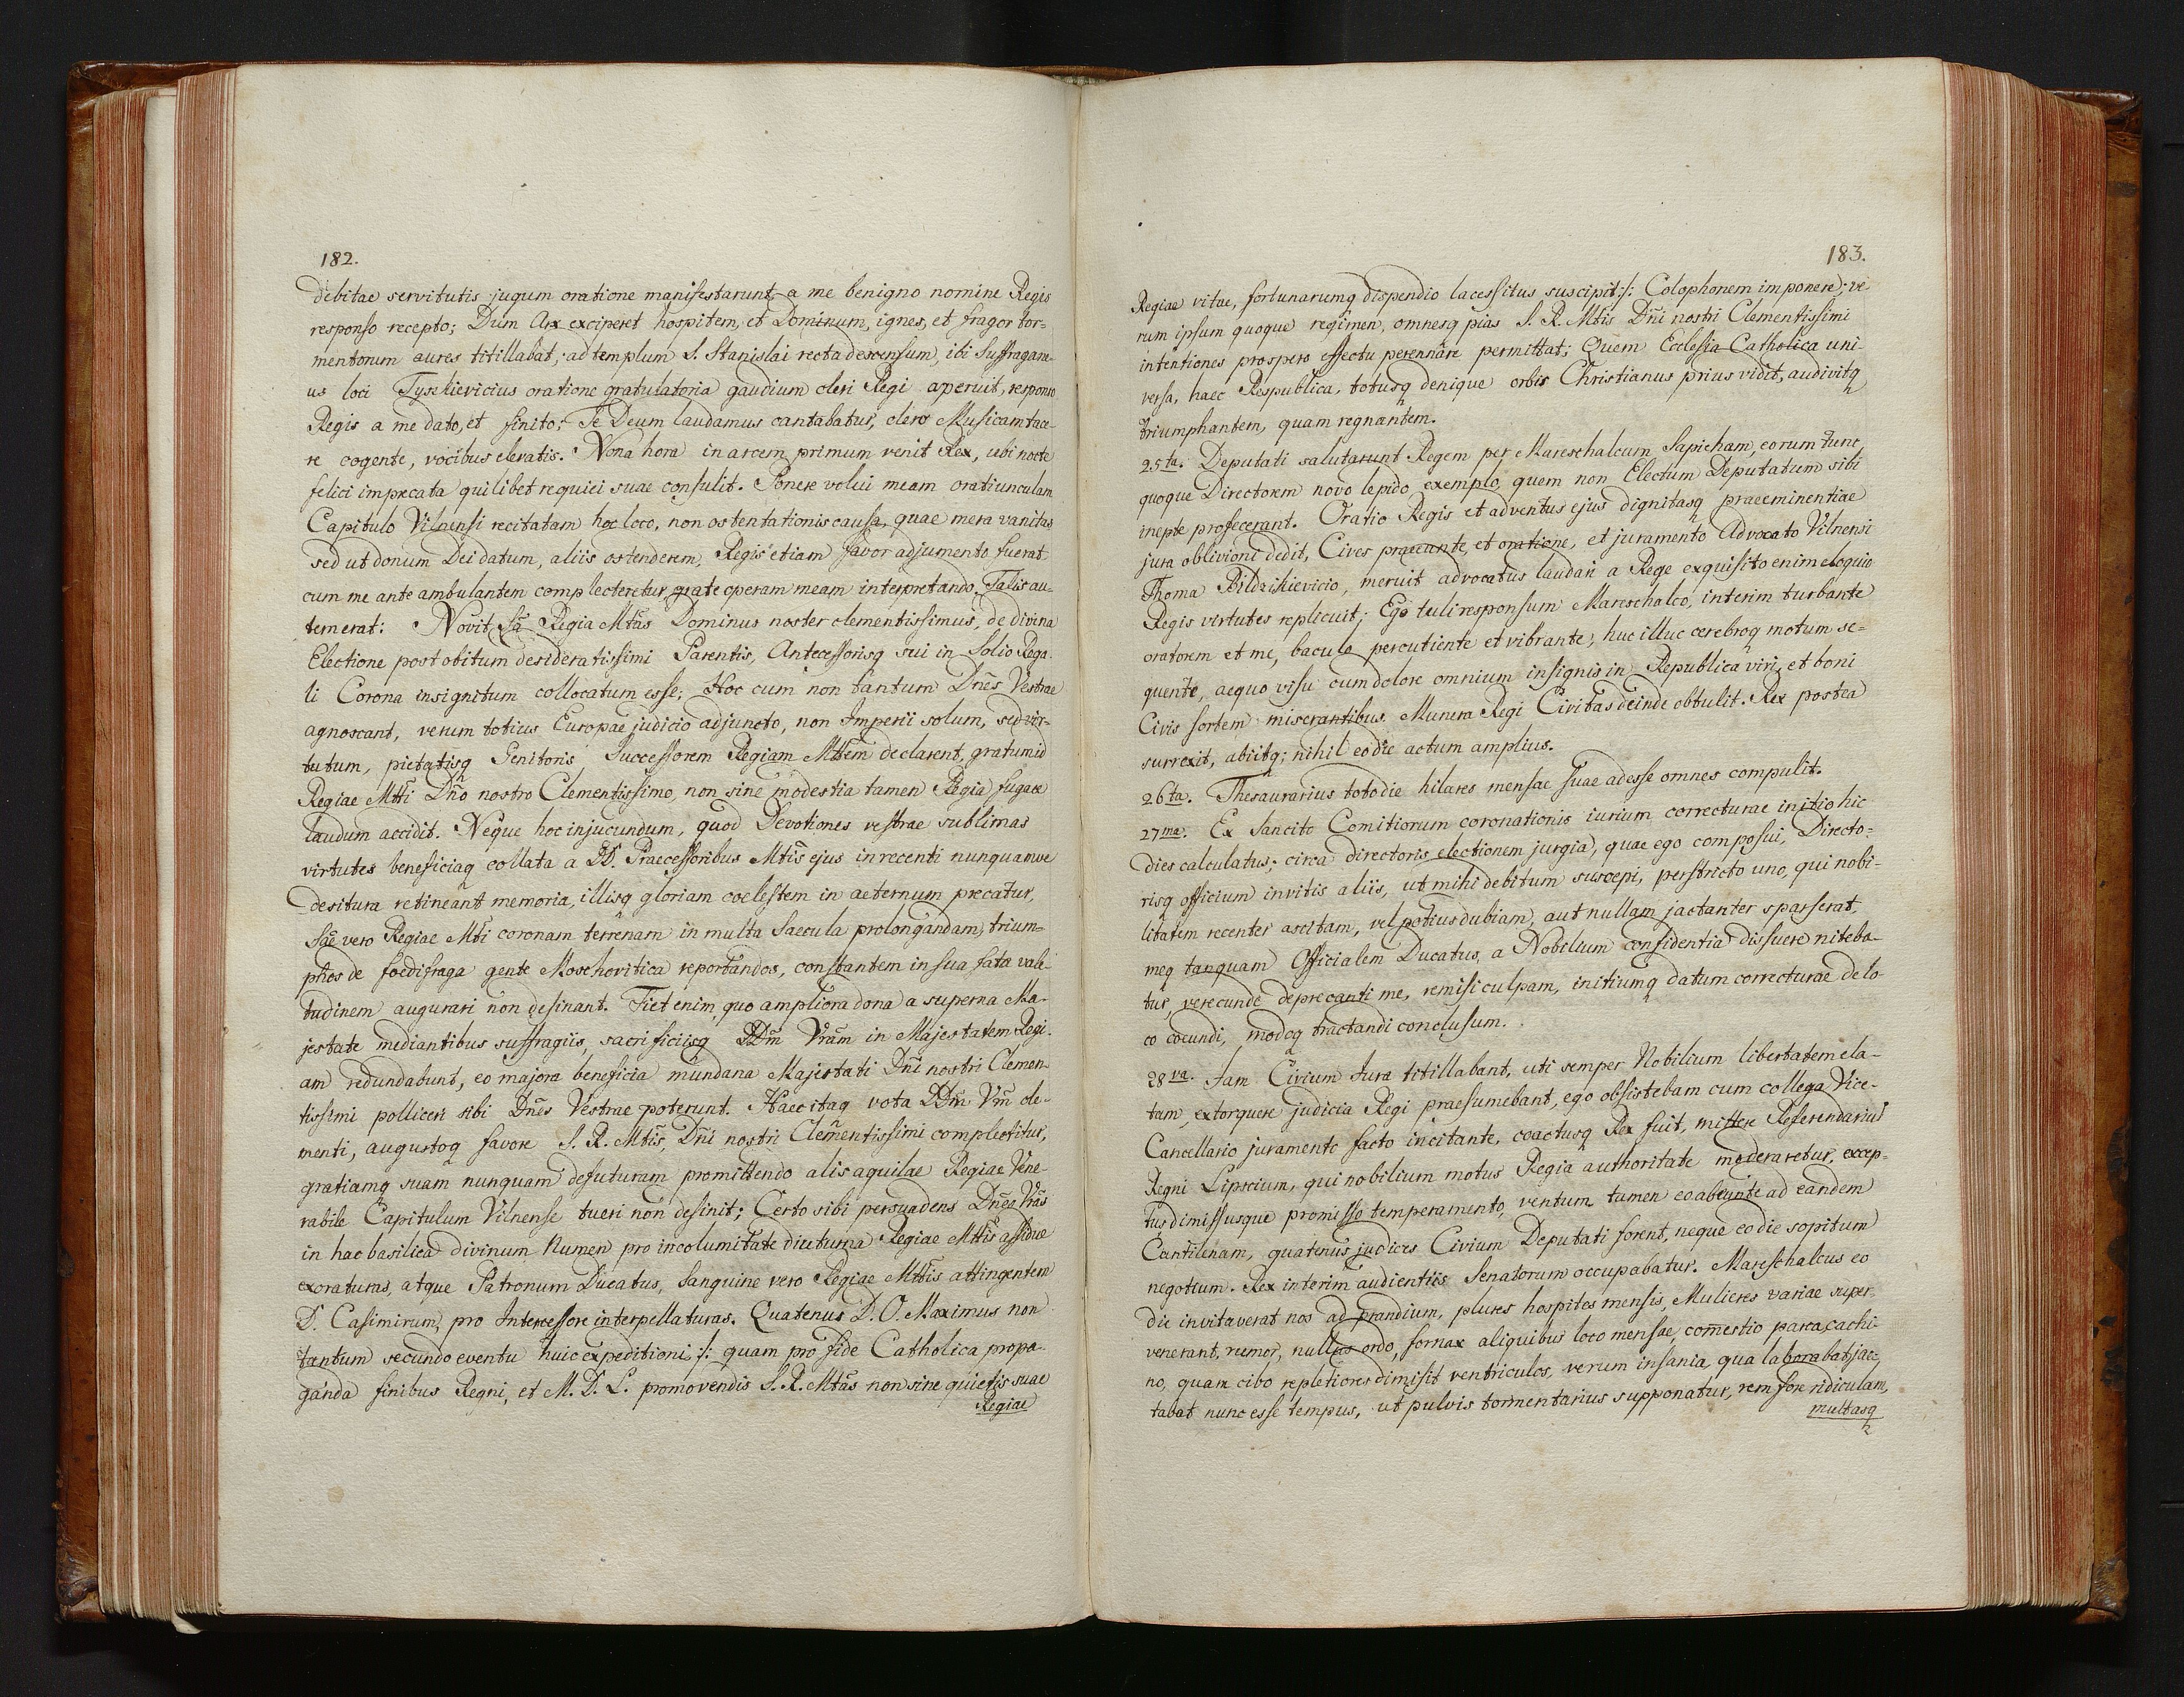 182.
debitae servitutis jugum oratione manifestarunt, a me benigno nomine Regis
responso recepto; Dum Arx exciperet hospitem, et Dominum, ignes, et fragor tor=
mentorum aures titillabat, ad templum S. Stanislai recta descensum, ibi Suffragane-
us loci Tyszkievicius oratione gratulatoria gaudium cleri Regi aperuit, responso
Regis a me dato, et finito; Te Deum laudamus cantabatur, clero Musicam tace-
re cogente, vocibus elevatis. Nona hora in arcem primum venit Rex, ubi nocte
felici imprecata quilibet requiei suae consulit. Ponere volui meam oratiunculam
Capitulo Vilnensi recitatam hoc loco, non ostentationis causa, quae mera vanitas
sed ut donum Dei datum, aliis ostenderem, Regis etiam favor adjumento fuerat
cum me ante ambulantem complecteretur, grate operam meam interpretando. Talis au-
tem erat: Novit Sa Regia Mtas Dominus noster clementissimus, de divina
Electione post obitum desideratissimi Parentis, Antecessorisq sui in Solio Rega-
li Corona insignitum collocatum esse; Hoc cum non tantum Dnes Vestrae
agnoscant, verum totius Europae judicio adjuncto, non Imperii solum, sed vir-
tutum, pietatisq Genitoris Successorem Regiam Mttem declarent, gratum id
Regiae Mtti Dno nostro Clementissimo, non sine modestia tamen Regia fugace
laudum accidit. Neque hoc injucundum, quod Devotiones vestrae sublimas
virtutes beneficiaq collata a DD. Praecessoribus Mtis ejus in recenti nunquamve
desitura retineant memoria, illisq gloriam coelestem in aeternum precatur,
Sae vero Regiae Mti coronam terrenam in multa Saecula prolongandam, trium-
phos de foedifraga gente Moschovitica reportandos, constantem in sua fata vale-
tudinem augurari non desinant. Fiet enim, quo ampliora dona a superna Ma-
jestate mediantibus suffragiis, sacrificiisq DDm Vram in Majestatem Regi-
am redundabunt, eo majora beneficia mundana Majestati Dni nostri Clemen-
tissimi polliceri sibi Dnes Vestrae poterunt. Haec itaq vota DDm Vm cle-
menti, augustoq favore S. R. Mtis, Dni nostri Clementissimi complectitur,
gratiamq suam nunquam defuturam promittendo alis aquilae Regiae Vene-
rabile Capitulum Vilnense tueri non desinit; Certo sibi persuadens Dnes Vras
in hac basilica divinum Numen pro incolumitate diuturna Regiae Mttis assidue
exoraturas, atque Patronum Ducatus, Sanguine vero Regiae Mttis attingentem
D. Casimirum, pro Intercessore interpellaturas. Quatenus D. O. Maximus non
tantum secundo eventu huic expeditioni /: quam pro fide Catholica propa-
ganda finibus Regni, et M. D. L. promovendis S. R. Mtas non sine quietis suae
Regiae
183.
Regiae vitae, fortunarumq dispendio lacessitus suscipit :/: Colophonem imponere; ve
rum ipsum quoque regimen, omnesq pias S. R. Mtis Dni nostri Clementissimi
intentiones prospero effectu perennare permittat; Quem Ecclesia Catholica uni-
versa, haec Respublica, totusq denique orbis Christianus prius vidit, audivitq
triumphantem, quam regnantem.
25ta. Deputati salutarunt Regem per Mareschalcum Sapieham, eorum tunc
quoque Directorem novo lepido exemplo, quem non Electum Deputatum sibi
inepte profecerant. Oratio Regis et adventus ejus dignitasq praeeminentiae
jura oblivioni dedit, Cives praeeunte, et oratione, et juramento Advocato Vilnensi
Thoma Bildzikievicio, meruit advocatus laudari a Rege exquisito enim eloquio
Regis virtutes replicuit; Ego tuli responsum Mareschalco, interim turbante
oratorem et me, baculo percutiente et vibrante, huc illuc cerebroq motum se=
quente, aequo visu cum dolore omnium insignis in Republica viri, et boni
Civis sortem miserantibus. Munera Regi Civitas deinde obtulit. Rex postea
surrexit, abiitq; nihil eo die actum amplius.
26ta. Thesaurarius toto die hilares mensae suae adesse omnes compulit.
27ma. Ex Sancito Comitiorum coronationis iurium correcturae initio hic
dies calculatus; circa directoris electionem jurgia, quae ego composui, Directo=
risq officium invitis aliis, ut mihi debitum suscepi, perstricto uno, qui nobi-
litatem recenter ascitam, vel potius dubiam, aut nullam jactanter sparserat,
meq tanquam Officialem Ducatus, a Nobilium confidentia dissuere niteba-
tur, verecunde deprecanti me, remisi culpam, initiumq datum correcturae de lo
co coeundi, modoq tractandi conclusum.
28va. Jam Civium Jura titillabant, uti semper Nobilium libertatem ela-
tam, extorquere judicia Regi praesumebant, ego obsistebam cum collega Vice-
Cancellario juramento facto incitante, coactusq Rex fuit, mittere Referendarium
Regni Lipscium, qui nobilium motus Regia authoritate moderaretur, excep=
tus dimissusque promisso temperamento, ventum tamen eo abeunte ad eandem
Cantilenam, quatenus judices Civium Deputati forent, neque eo die sopitum
negotium. Rex interim audientiis Senatorum occupabatur. Mareschalcus eo
die invitaverat nos ad prandium, plures hospites mensis, Mulieres variae super-
venerant, rumor, nullus ordo, fornax aliquibus loco mensae, comestio parca, cachi-
no, quam cibo repletiores dimisit ventriculos, verum insania, qua laborabat jac-
tabat nunc esse tempus, ut pulvis tormentarius supponatur, rem fore ridiculam,
multasq